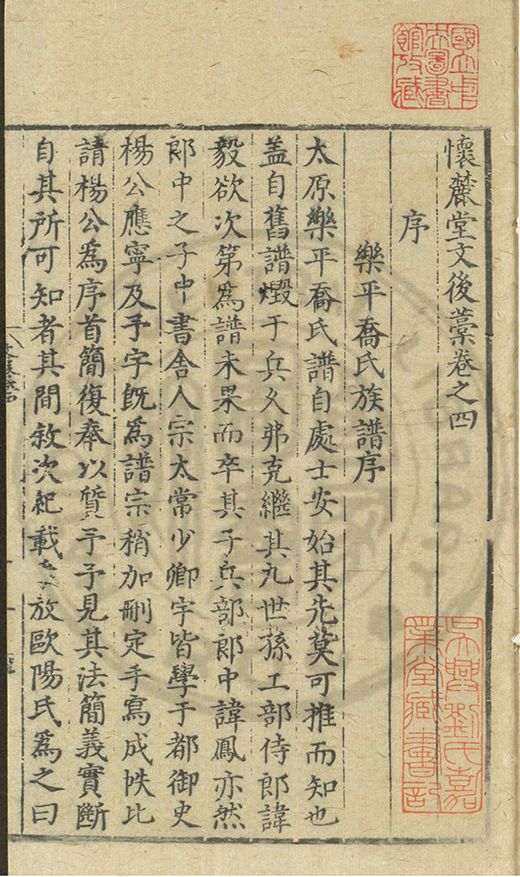 國立中
央圖書
館收藏
懷麓堂文後藁卷之四
序
樂平喬氏族譜序
太原樂平喬氏譜自處士安始其先莫可推而知也
盖自舊譜燬于兵久弗克繼其九世孫工部侍郎諱
毅欲次第爲譜未果而卒其子兵部郎中諱鳳亦然
郎中之子中書舍人宗太常少卿宇皆學于都御史
楊公應寧及予字旣爲譜宗稍加刪定手寫成帙比
請楊公爲序首簡復奉以質予予見其法簡義實斷
自其所可知者其間敘次紀載放歐陽氏爲之曰
吳興劉氏嘉
業堂藏書記